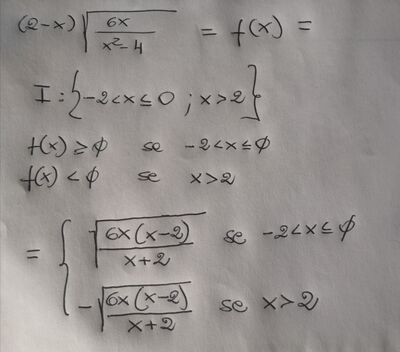 (2-x) √(6x / (x²-4)) = f(x) =
I: {-2<x≤0 ; x>2}
f(x) ≥ ∅ se -2<x≤∅
f(x) < ∅ se x>2
= { √(6x(x-2) / (x+2)) se -2<x≤∅
-√(6x(x-2) / (x+2)) se x>2